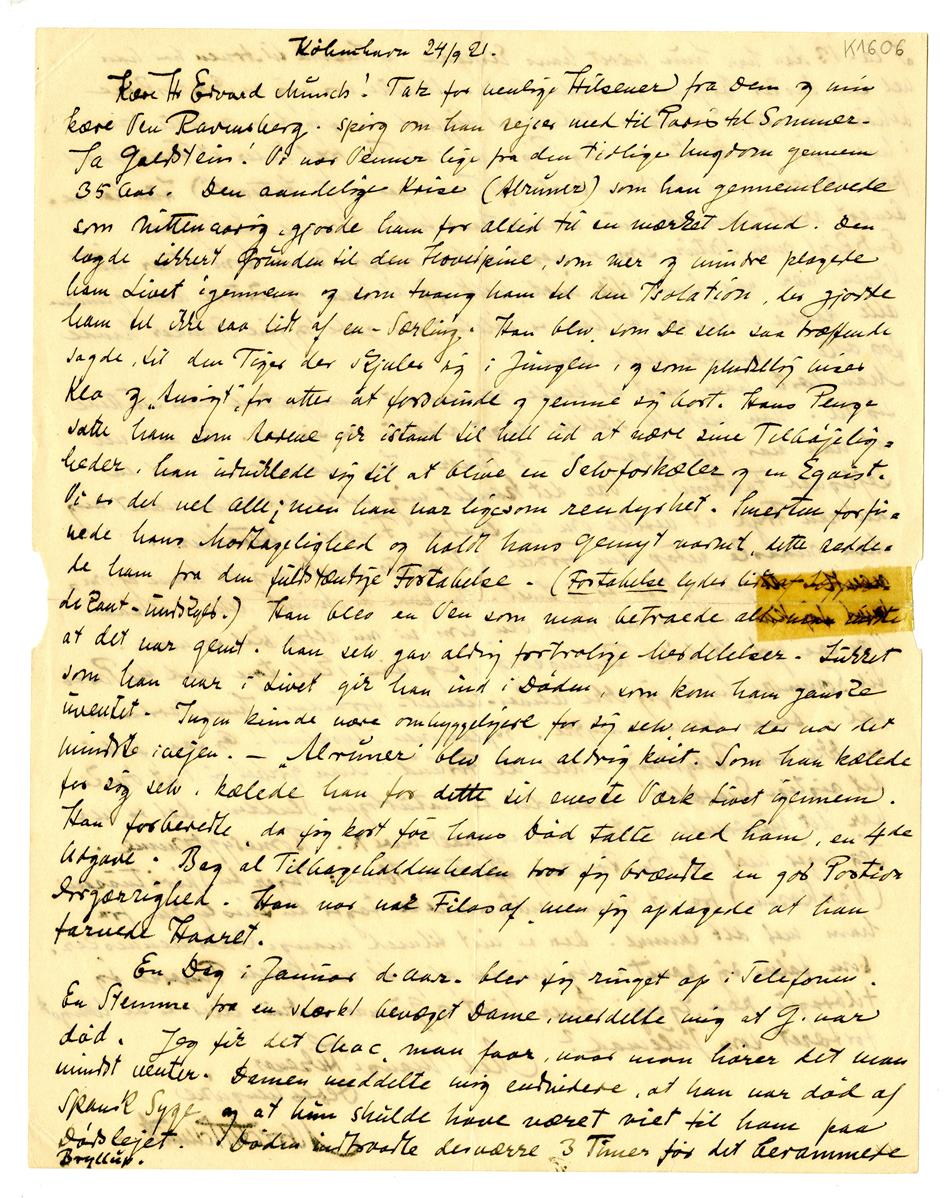 K1606
København 24/9 21.
Kære Hr Edvard Munch! Tak for venlige Hilsener fra Dem og min
kære Ven Ravensberg. Spørg om han rejser med til Paris til Sommer.
Ja Goldstein! Vi var Venner lige fra den tidlige Ungdom gennem
35 Aar. Den aandelige Krise (Alruner) som han gennemlevede
som nittenaarig, gjorde ham for altid til en mærket Mand. Den
lagde sikkert Grunden til den Hovedpine, som mer og mindre plagede
ham Livet igennem og som tvang ham til den Isolation, der gjorde
ham til ikke saa lidt af en Særling. Han blev, som De selv saa træffende
sagde, til den Tiger der skjuler sig i Junglen, og som pludselig viser
Klo og "Ansigt", for atter at forsvinde og gemme sig bort. Hans Penge
satte ham som Aarene gik istand til helt ud at være sine Tilbøjelig-
heder, han udviklede sig til at blive en Selvforkæler og en Egoist.
Vi er det vel alle; men han var ligesom rendyrket. Smerten forfi-
nede hans Modtagelighed og holdt hans Gemyt varmt, dette redde-
de ham fra den fuldstændige Fortabelse. (Fortabelse lyder lidt
de Rant - undskyld.) Han blev en Ven som man betroede alt
at det var gemt. Han selv gav aldrig fortrolige Meddelelser. Lukket
som han var i Livet gik han ind i Døden, som kom ham ganske
uventet. Ingen kunde være omhyggeligere for sig selv, naar der var det
mindste ivejen. — "Alruner" blev han aldrig kvit. Som han kælede
for sig selv, kælede han for dette sit eneste Værk Livet igennem.
Han forberedte, da jeg kort før hans Død talte med ham, en 4de
Udgave. Bag al Tilbageholdenheden tror jeg brændte en god Portion
Ærgærrighed. Han var nok Filosof, men jeg opdagede at han
farvede Haaret.
En Dag i Januar d. aar. blev jeg ringet op i Telefonen.
En Stemme fra en stærkt bevæget Dame, meddelte mig at G. var
død. Jeg fik det Choc, man faar, naar man hører det man
mindst venter. Damen meddelte mig endvidere, at han var død af
Spansk Syge og at hun skulde have været viet til ham paa
Dødslejet. Døden indtraadte desværre 3 Timer før det berammede
Bryllup.